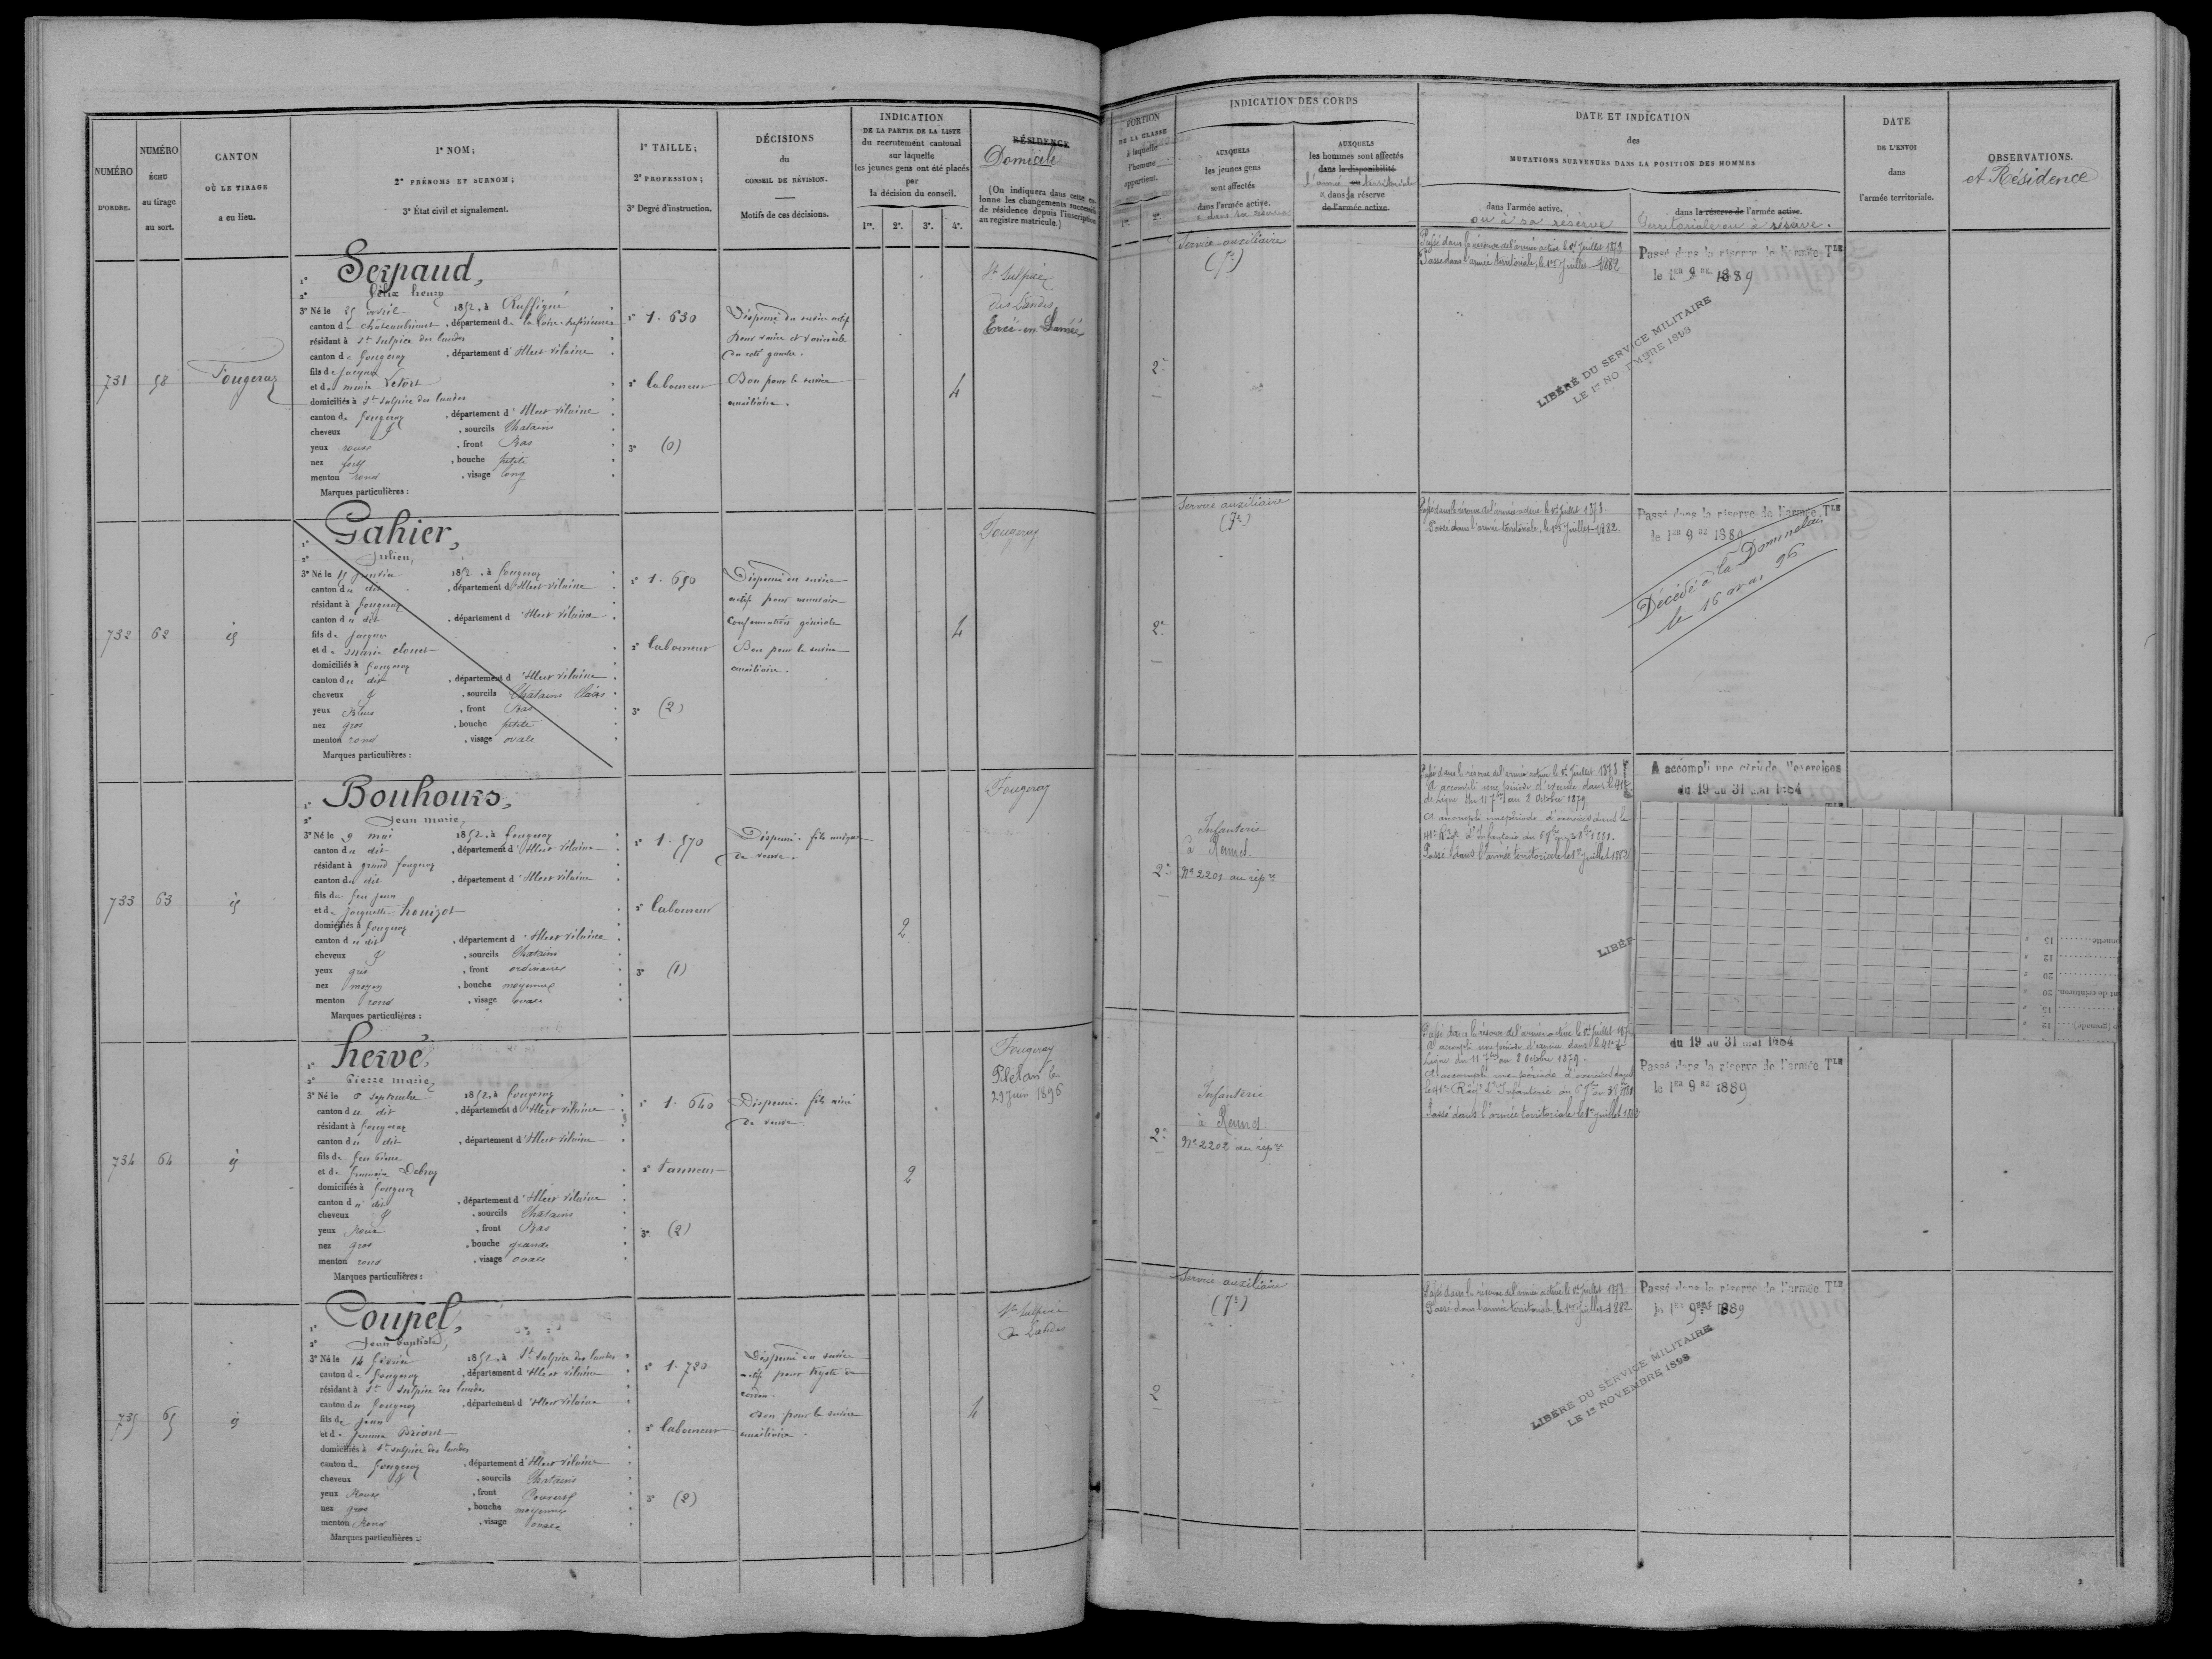 NUMÉRO
D'ORDRE.
NUMÉRO
ÉCHU
au tirage
au sort.
CANTON
OÙ LE TIRAGE
a eu lieu.
1° NOM;
2° PRÉNOMS ET SURNOM;
3° État civil et signalement.
1° TAILLE;
2° PROFESSION;
3° Degré d'instruction.
DÉCISIONS
du
CONSEIL DE RÉVISION.
Motifs de ces décisions.
INDICATION
DE LA PARTIE DE LA LISTE
du recrutement cantonal
sur laquelle
les jeunes gens ont été placés
par
la décision du conseil.
1re. 2e. 3e. 4e.
RÉSIDENCE
Domicile
(On indiquera dans cette co-
lonne les changements successifs
de résidence depuis l'inscription
au registre matricule.)
731
58
Fougeray
1° Serpaud,
2° félix henry
3° Né le 25 avril 1852, à Ruffigné
canton de chateaubriant, département de la loire-inférieure
résidant à St Sulpice des landes
canton de fougeray, département d'Ille et vilaine
fils de jacques
et de marie Letort
domiciliés à St Sulpice des landes
canton de fougeray, département d'Ille et vilaine
cheveux &, sourcils Chatains
yeux roux, front Bas
nez fort, bouche petite
menton rond, visage long
Marques particulières :
1° 1. 630
2° laboureur
3° (0)
Dispensé du service actif
Bon pour le service
auxiliaire.
4
St Sulpice
des Landes
Ercé-en-Lamée
732
62
id
1° Gahier,
2° Julien,
3° Né le 15 janvier 1852, à fougeray
canton du dit, département d'Ille et vilaine
résidant à fougeray
canton du dit, département d'Ille et vilaine
fils de jacques
et de marie clouet
domiciliés à fougeray
canton du dit, département d'Ille et vilaine
cheveux &, sourcils Chatains Clairs
yeux Bleus, front Bas
nez gros, bouche petite
menton rond, visage ovale
Marques particulières :
1° 1. 650
2° laboureur
3° (2)
Dispensé du service
actif pour mauvaise
conformation générale
Bon pour le service
auxiliaire.
4
Fougeray
733
63
id
1° Bouhours,
2° Jean marie,
3° Né le 9 mai 1852, à fougeray
canton du dit, département d'Ille et vilaine
résidant à grand fougeray
canton du dit, département d'Ille et vilaine
fils de feu jean
et de jacquette
domiciliés à fougeray
canton du dit, département d'Ille et vilaine
cheveux &, sourcils Chatains
yeux gris, front ordinaire
nez moyen, bouche moyenne
menton rond, visage ovale
Marques particulières :
1° 1. 570
2° laboureur
3° (1)
Dispensé. fils unique
de veuve.
2
Fougeray
734
64
id
1° hervé,
2° Pierre marie,
3° Né le 6 septembre 1852, à fougeray
canton du dit, département d'Ille et vilaine
résidant à fougeray
canton du dit, département d'Ille et vilaine
fils de feu Pierre
et de
domiciliés à fougeray
canton du dit, département d'Ille et vilaine
cheveux &, sourcils Chatains
yeux Roux, front Bas
nez gros, bouche grande
menton rond, visage ovale
Marques particulières :
1° 1. 640
2° tanneur
3° (2)
Dispensé. fils ainé
de veuve
2
Fougeray
Plélan le
29 juin 1896
735
65
id
1° Coupel,
2° Jean baptiste,
3° Né le 14 février 1852, à St Sulpice des landes
canton de fougeray, département d'Ille et vilaine
résidant à St Sulpice des landes
canton de fougeray, département d'Ille et vilaine
fils de jean
et de jeanne Briand
domiciliés à St Sulpice des landes
canton de fougeray, département d'Ille et vilaine
cheveux &, sourcils Chatains
yeux Roux, front Couvert
nez gros, bouche moyenne
menton Rond, visage ovale
Marques particulières :
1° 1. 720
2° laboureur
3° (2)
Dispensé du service
actif pour kyste du
Bon pour le service
auxiliaire.
4
St Sulpice
des Landes
PORTION
DE LA CLASSE
à laquelle
l'homme
appartient.
1re. 2e.
INDICATION DES CORPS
AUXQUELS
les jeunes gens
sont affectés
dans l'armée active.
& dans sa réserve
AUXQUELS
les hommes sont affectés
dans la disponibilité
l'armée territoriale
& dans la réserve
de l'armée active.
DATE ET INDICATION
des
MUTATIONS SURVENUES DANS LA POSITION DES HOMMES
dans l'armée active.
ou à sa réserve
dans la réserve de l'armée active.
Territoriale ou à réserve.
DATE
DE L'ENVOI
dans
l'armée territoriale.
OBSERVATIONS.
et Résidence
2e
Service auxiliaire
(7e)
Passé dans la réserve de l'armée active le 1er Juillet 1878
Passé dans l'armée territoriale, le 1er Juillet 1882
Passé dans la réserve de l'armée Tle
le 1er 9bre 1889
LIBÉRÉ DU SERVICE MILITAIRE
LE 1er NOVEMBRE 1898
2e
Service auxiliaire
(7e)
Passé dans la réserve de l'armée active le 1er Juillet 1878.
Passé dans l'armée territoriale, le 1er Juillet 1882
Passé dans la réserve de l'armée Tle
le 1er 9bre 1889
Décédé à la Dominelais
le 16 mars 96
2e
Infanterie
à Rennes.
No 2201 au rép re
Passé dans la réserve de l'armée active le 1er Juillet 1878
A accompli une période d'exercice dans le 41e
de Ligne du 11 7bre au 8 Octobre 1879
A accompli une période d'exercices dans le
41e Régt d'Infanterie du
Passé dans l'armée territoriale le 1er juillet 1882
A accompli une période d'exercices
du 19 au 31 mai 1884
LIBÉR
2e
Infanterie
à Rennes
No 2202 au rép re
Passé dans la réserve de l'armée active le 1er Juillet 187
A accompli une période d'exercice dans le 41e de
Ligne du 11 7bre au 8 Octobre 1879.
A accompli une période d'exercices dans
le 41e Régt d'Infanterie du
Passé dans l'armée territoriale le 1er juillet 1882
du 19 au 31 mai 1884
Passé dans la réserve de l'armée Tle
le 1er 9bre 1889
2
Service auxiliaire
(7e)
Passé dans la réserve de l'armée active le 1er Juillet 1878
Passé dans l'armée territoriale, le 1er Juillet 1882
Passé dans la réserve de l'armée Tle
le 1er 9bre 1889
LIBÉRÉ DU SERVICE MILITAIRE
LE 1er NOVEMBRE 1898